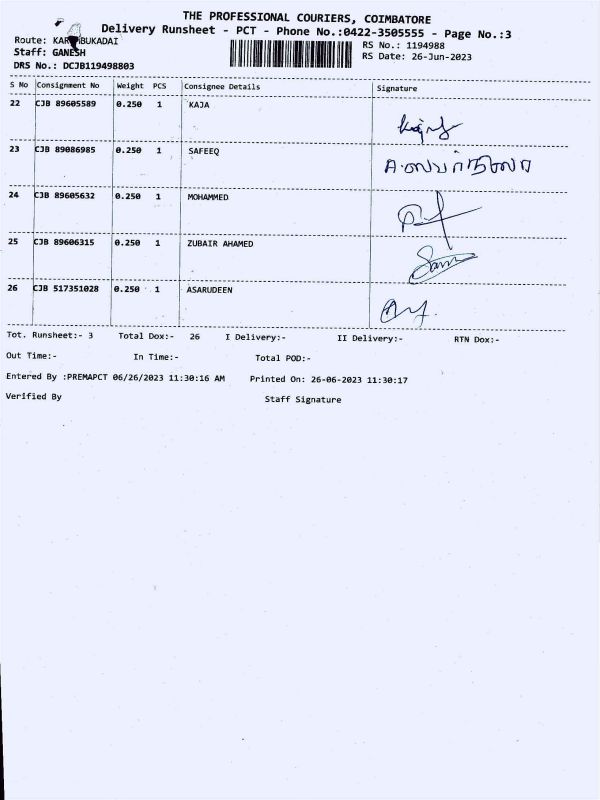 THE PROFESSIONAL COURIERS, COIMBATORE
Delivery Runsheet - PCT - Phone No.:0422-3505555 - Page No.:3
Route: KARUMBUKADAI
RS No.: 1194988
Staff: GANESH
RS Date: 26-Jun-2023
DRS No.: DCJB119498803
S No Consignment No Weight PCS Consignee Details Signature
22 CJB 89605589 0.250 1 KAJA
23 CJB 89086985 0.250 1 SAFEEQ
24 CJB 89605632 0.250 1 MOHAMMED
25 CJB 89606315 0.250 1 ZUBAIR AHAMED
26 CJB 517351028 0.250 1 ASARUDEEN
Tot. Runsheet:- 3 Total Dox:- 26 I Delivery:- II Delivery:- RTN Dox:-
Out Time:- In Time:- Total POD:-
Entered By :PREMAPCT 06/26/2023 11:30:16 AM Printed On: 26-06-2023 11:30:17
Verified By Staff Signature